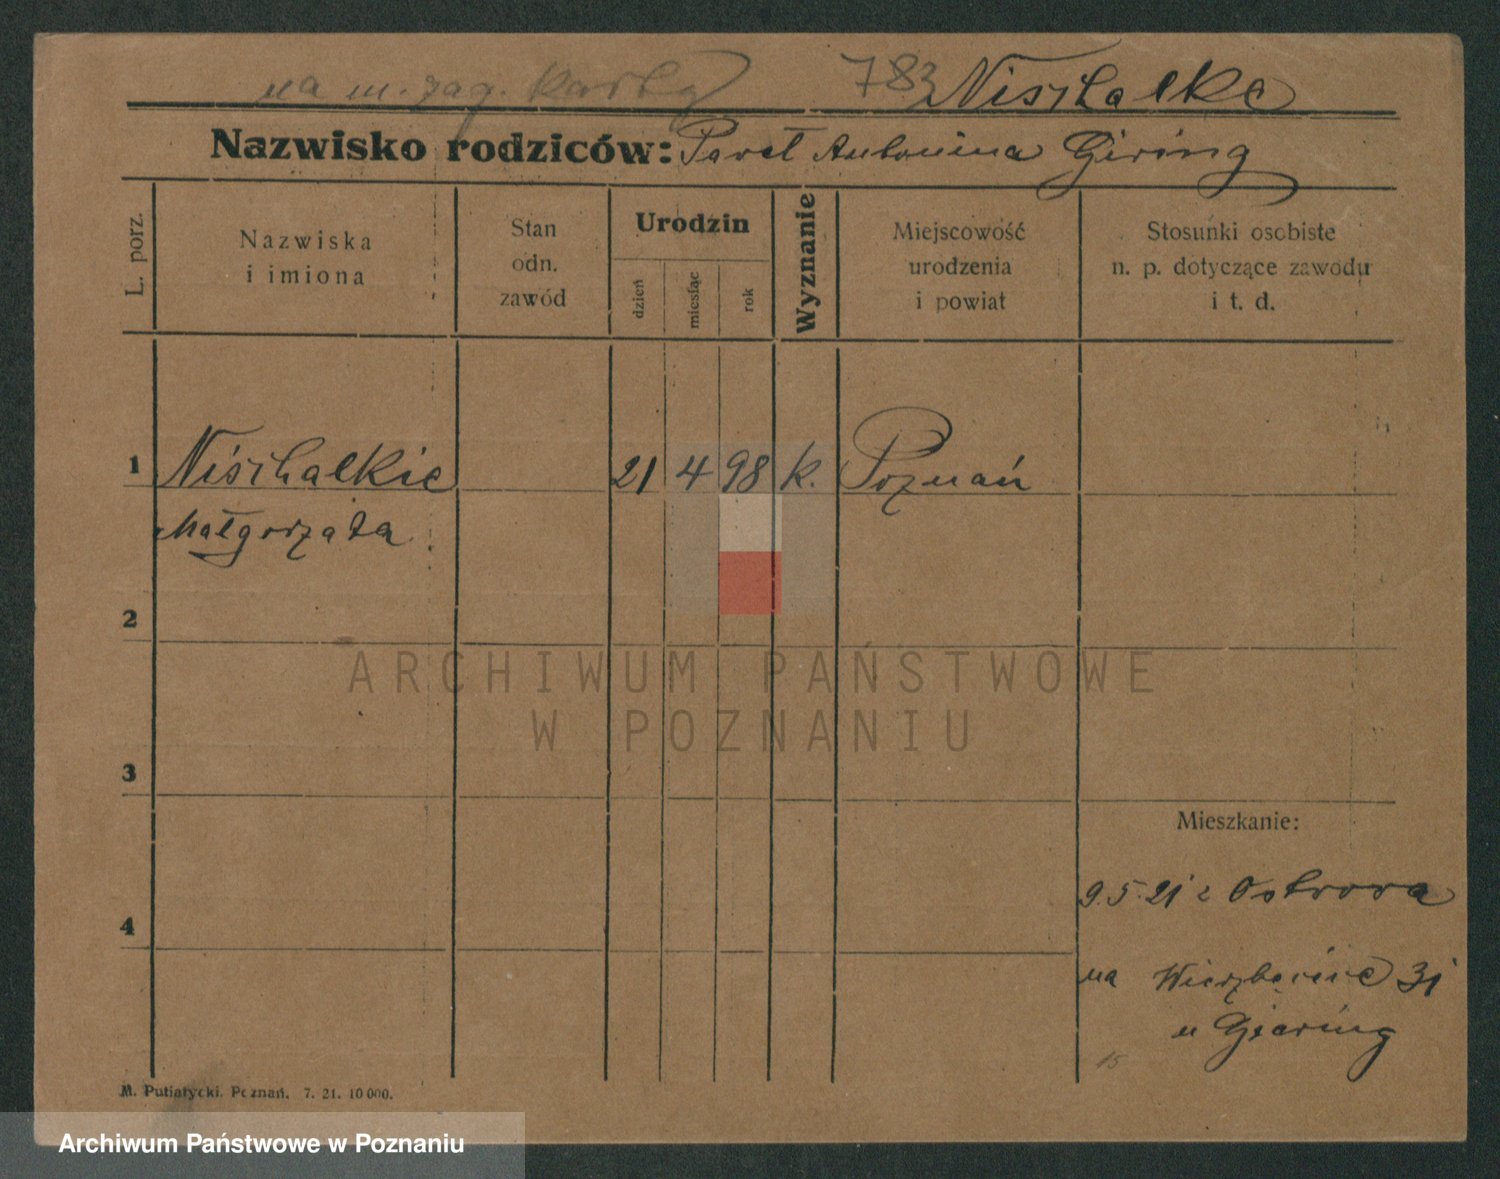 na m. zag. Karty 783 Nischalke
Nazwisko rodziców: Paweł Antonina Giring
L. porz.
Nazwiska
i imiona
Stan
odn.
zawód
Urodzin
dzień
miesiąc
rok
Wyznanie
Miejscowość
urodzenia
i powiat
Stosunki osobiste
n. p. dotyczące zawodu
i t. d.
1 Nischalkie 21 4 98 k. Poznań
Małgorzata
2
ARCHIWUM PAŃSTWOWE
W POZNANIU
3
Mieszkanie:
9.5.21 z Ostrowa
4
na Wierzbięcice 31
u Giering
15
M. Putiatycki. Poznań. 7. 21. 10 000.
Archiwum Państwowe w Poznaniu